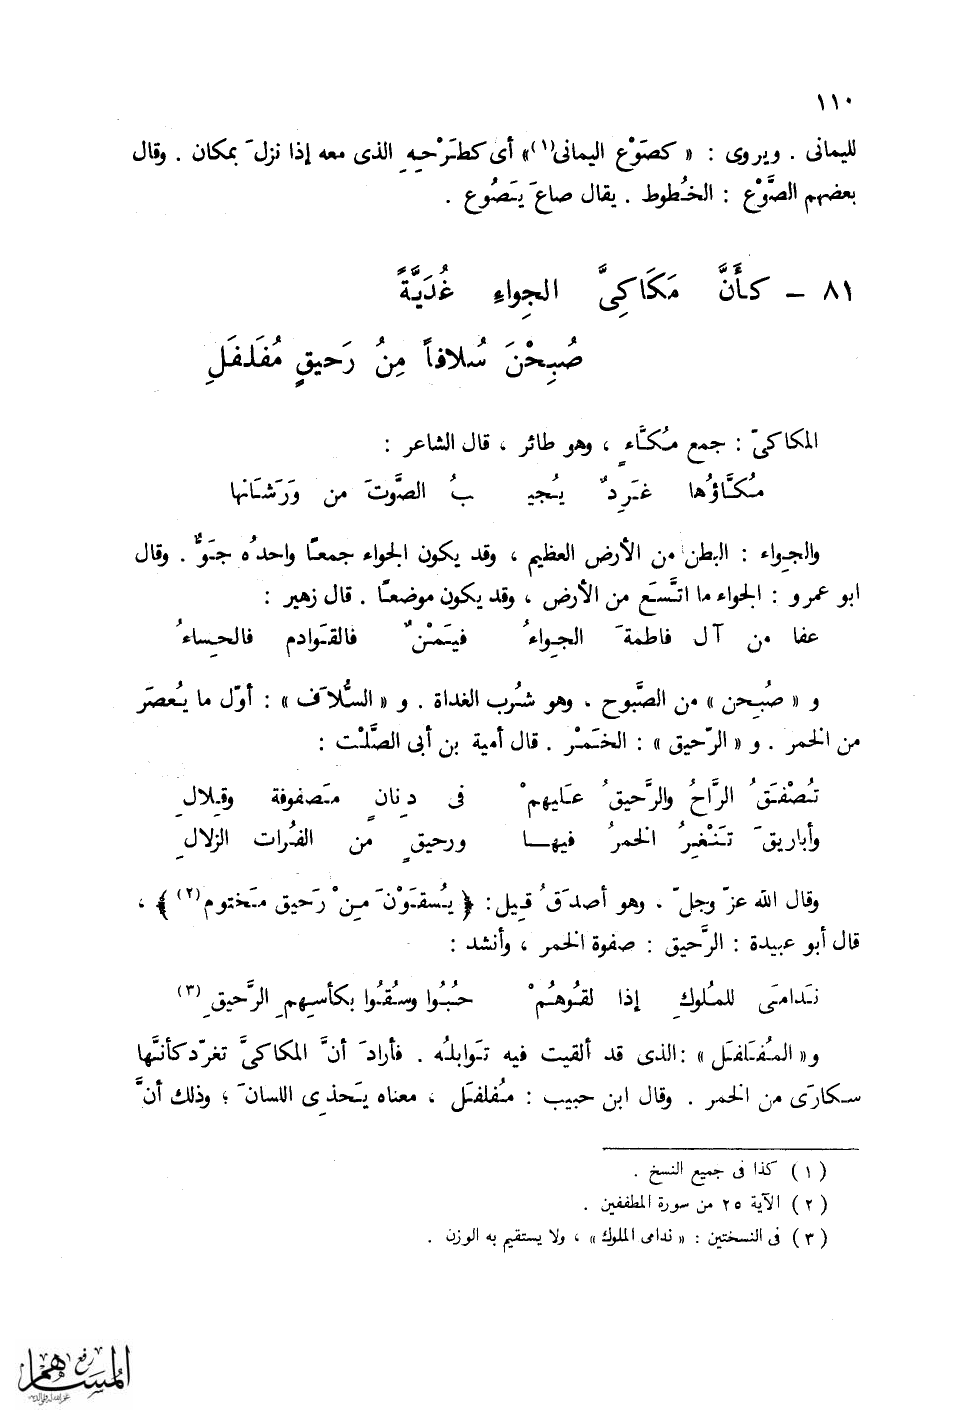 ١١٠
لليمانى . ويروى : « كصَوْع اليمانى(١)» أى كطَرْحِهِ الذى معه إذا نزلَ بمكان . وقال
بعضهم الصَّوْع : الخُطوط . يقال صاعَ يَصُوع .
٨١ – كأَنَّ مَكَاكِىَّ الجِواءِ غُدَيَّةً
صُبِحْنَ سُلافاً مِنُ رَحيقٍ مُفَلفَلِ
المكاكىّ : جمع مُكَّاءٍ ، وهو طائر ، قال الشاعر :
مُكَّاؤُها غَرِدٌ يُجيـ ـبُ الصَّوتَ من وَرَشانها
والجِواء : البطن من الأرض العظيم ، وقد يكون الجواء جمعًا واحدُه جَوٌّ . وقال
ابو عمرو : الجواء ما اتَّسَع من الأرض ، وقد يكون موضعًا . قال زهير :
عفا من آل فاطمةَ الجِواءُ فيَمْنٌ فالقَوادم فالحِساءُ
و « صُبِحن » من الصَّبوح ، وهو شُرب الغداة . و « السُّلاَف » : أوّل ما يُعصَر
من الخمر . و « الرّحيق » : الخَمْر . قال أمية بن أبى الصَّلْت :
تُصْفَقُ الرَّاحُ والرَّحيقُ عَليهمْ فى دِنانٍ مَصفوفة وقِلالِ
وأباريقَ تَنْغِرُ الخمرُ فيهـــا ورحيقٍ من الفُرات الزلالِ
وقال الله عزّ وجلّ ، وهو أصدَقُ قِيل : ﴿ يُسقَوْنَ مِنْ رَحيق مَختوم(٢) ﴾ ،
قال أبو عبيدة : الرَّحيق : صفوة الخمر ، وأنشد :
نَدامَى للمُلوكِ إذا لقُوهُمْ حُبُوا وسُقُوا بكأسِهمِ الرَّحيقِ(٣)
و« المُفلفَل » :الذى قد ألقيت فيه تَوابلُه . فأرادَ أنَّ المكاكىَّ تغرّد كأنَّها
سكارَى من الخمر . وقال ابن حبيب : مُفلفَل ، معناه يَحذِى اللسانَ ؛ وذلك أنَّ
(١) كذا فى جميع النسخ .
(٢) الآية ٢٥ من سورة المطففين .
(٣) فى النسختين : « ندامى الملوك » ، ولا يستقيم به الوزن .
رفع
المساهم